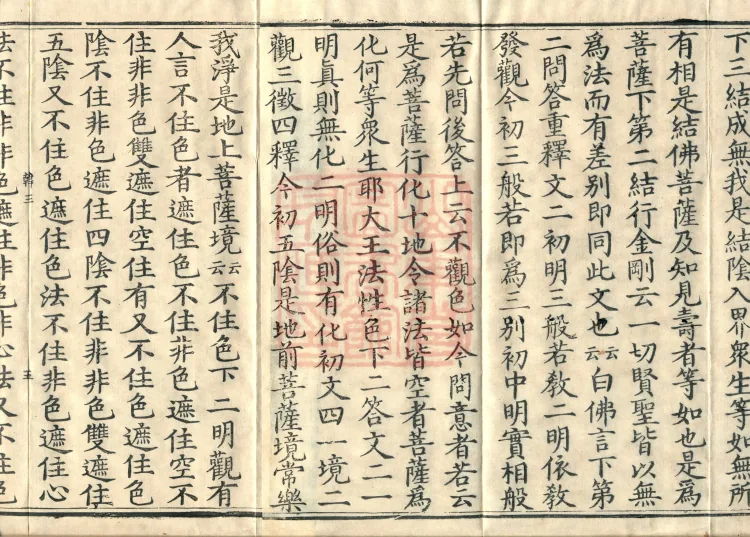 下三結成無我是結陰入界衆生等如無所
有相是結佛菩薩及知見壽者等如也是爲
菩薩下第二結行金剛云一切賢聖皆以無
爲法而有差别即同此文也云云白佛言下第
二問答重釋文二初明三般若教二明依教
發觀今初三般若即爲三别初中明實相般
若先問後答上云不觀色如今問意者若云
是爲菩薩行化十地令諸法皆空者菩薩爲
化何等衆生耶大王法性色下二答文二一
明眞則無化二明俗則有化初文四一境二
觀三徵四釋今初五陰是地前菩薩境常樂
我淨是地上菩薩境云云不住色下二明觀有
人言不住色者遮住色不住非色遮住空不
住非非色雙遮住空住有又不住色遮住色
陰不住非色遮住四陰不住非非色雙遮住
五陰又不住色遮住色法不住非色遮住心
法不住非非色遮住非色非心法又不住色
韓三
五